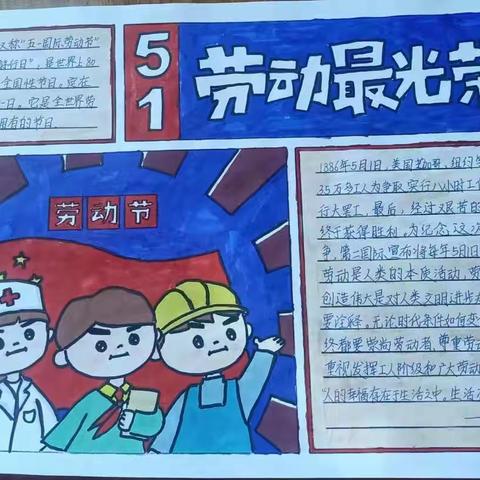 又称"五一国际劳动节"
行日",是世界上80
全国性节日。定在
一日。它是全世界劳
拥有的节日.
5
1
劳动最光荣
劳动节
1886年5月1日,美国芝加哥、纽约等
35万多工人为争取实行八小时工作
行大罢工,最后,经过艰苦的
终于获得胜利,为纪念这次
争,第二国际宣布将每年5月1日
劳动是人类的本质活动,劳
创造伟大是对人类文明进步
要诠释。无论时代条件如何变
终都要崇尚劳动者、尊重劳动
重视发挥工人阶级和广大劳动
人的幸福存在于生活之中,生活